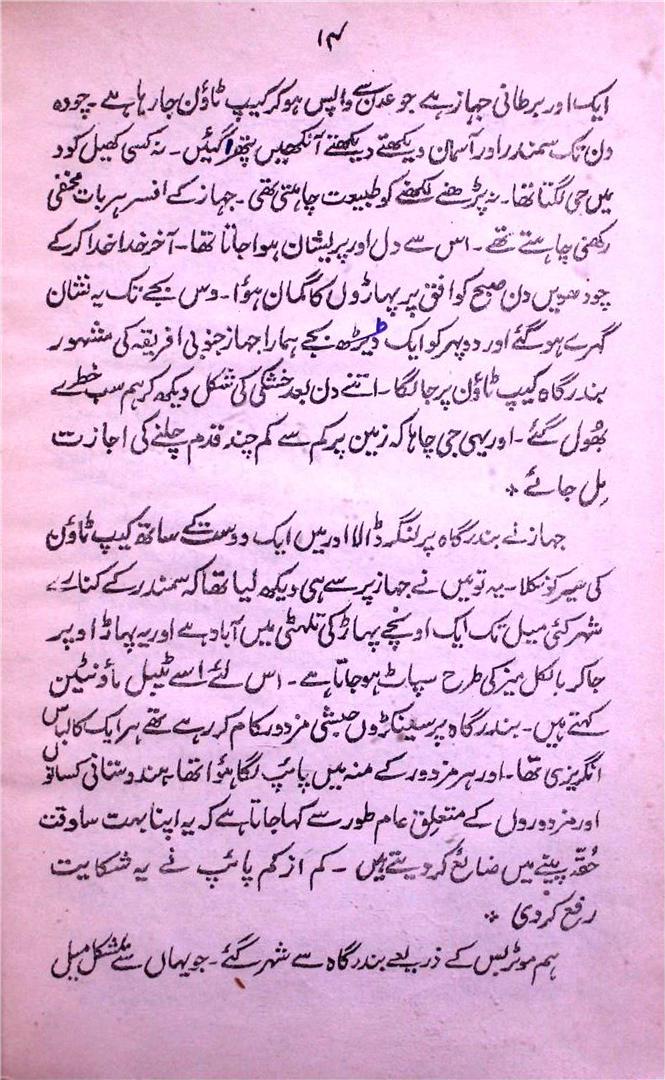 ۱۴
ایک اور برطانی جہاز ہے جو عدن سے واپس ہو کر کیپ ٹاؤن جا رہا ہے۔ چودہ
دن تک سمندر اور آسمان دیکھتے دیکھتے آنکھیں پتھرا گئیں۔ نہ کسی کھیل کود
میں جی لگتا تھا۔ نہ پڑھنے لکھنے کو طبیعت چاہتی تھی۔ جہاز کے افسر ہر بات مخفی
رکھنی چاہتے تھے۔ اس سے دل اور پریشان ہوا جاتا تھا۔ آخر خدا خدا کر کے
چودھویں دن صبح کو افق پر پہاڑوں کا گمان ہؤا۔ دس بجے تک یہ نشان
گہرے ہو گئے اور دوپہر کو ایک ڈیڑھ بجے ہمارا جہاز جنوبی افریقہ کی مشہور
بندرگاہ کیپ ٹاؤن پر جا لگا۔ اتنے دن بعد خشکی کی شکل دیکھ کر ہم سب خطرے
بھُول گئے۔ اور یہی جی چاہا کہ زمین پر کم سے کم چند قدم چلنے کی اجازت
مِل جائے ٭
جہاز نے بندرگاہ پر لنگر ڈالا اور میں ایک دوست کے ساتھ کیپ ٹاؤن
کی سیر کو نکلا۔ یہ تو میں نے جہاز پر سے ہی دیکھ لیا تھا کہ سمندر کے کنارے
شہر کئی میل تک ایک اونچے پہاڑ کی تلہٹی میں آباد ہے اور یہ پہاڑ اوپر
جا کر بالکل میز کی طرح سپاٹ ہو جاتا ہے۔ اس لئے اسے ٹیبل ماؤنٹین
کہتے ہیں۔ بندرگاہ پر سینکڑوں حبشی مزدور کام کر رہے تھے ہر ایک کا لباس
انگریزی تھا۔ اور ہر مزدور کے منہ میں پائپ لگا ہؤا تھا۔ ہندوستانی کسانوں
اور مزدوروں کے متعلق عام طور سے کہا جاتا ہے کہ یہ اپنا بہت سا وقت
حُقّہ پینے میں ضائع کر دیتے ہیں۔ کم از کم پائپ نے یہ شکایت
رفع کر دی ٭
ہم موٹر بس کے ذریعے بندرگاہ سے شہر گئے۔ جو یہاں سے بمشکل میل